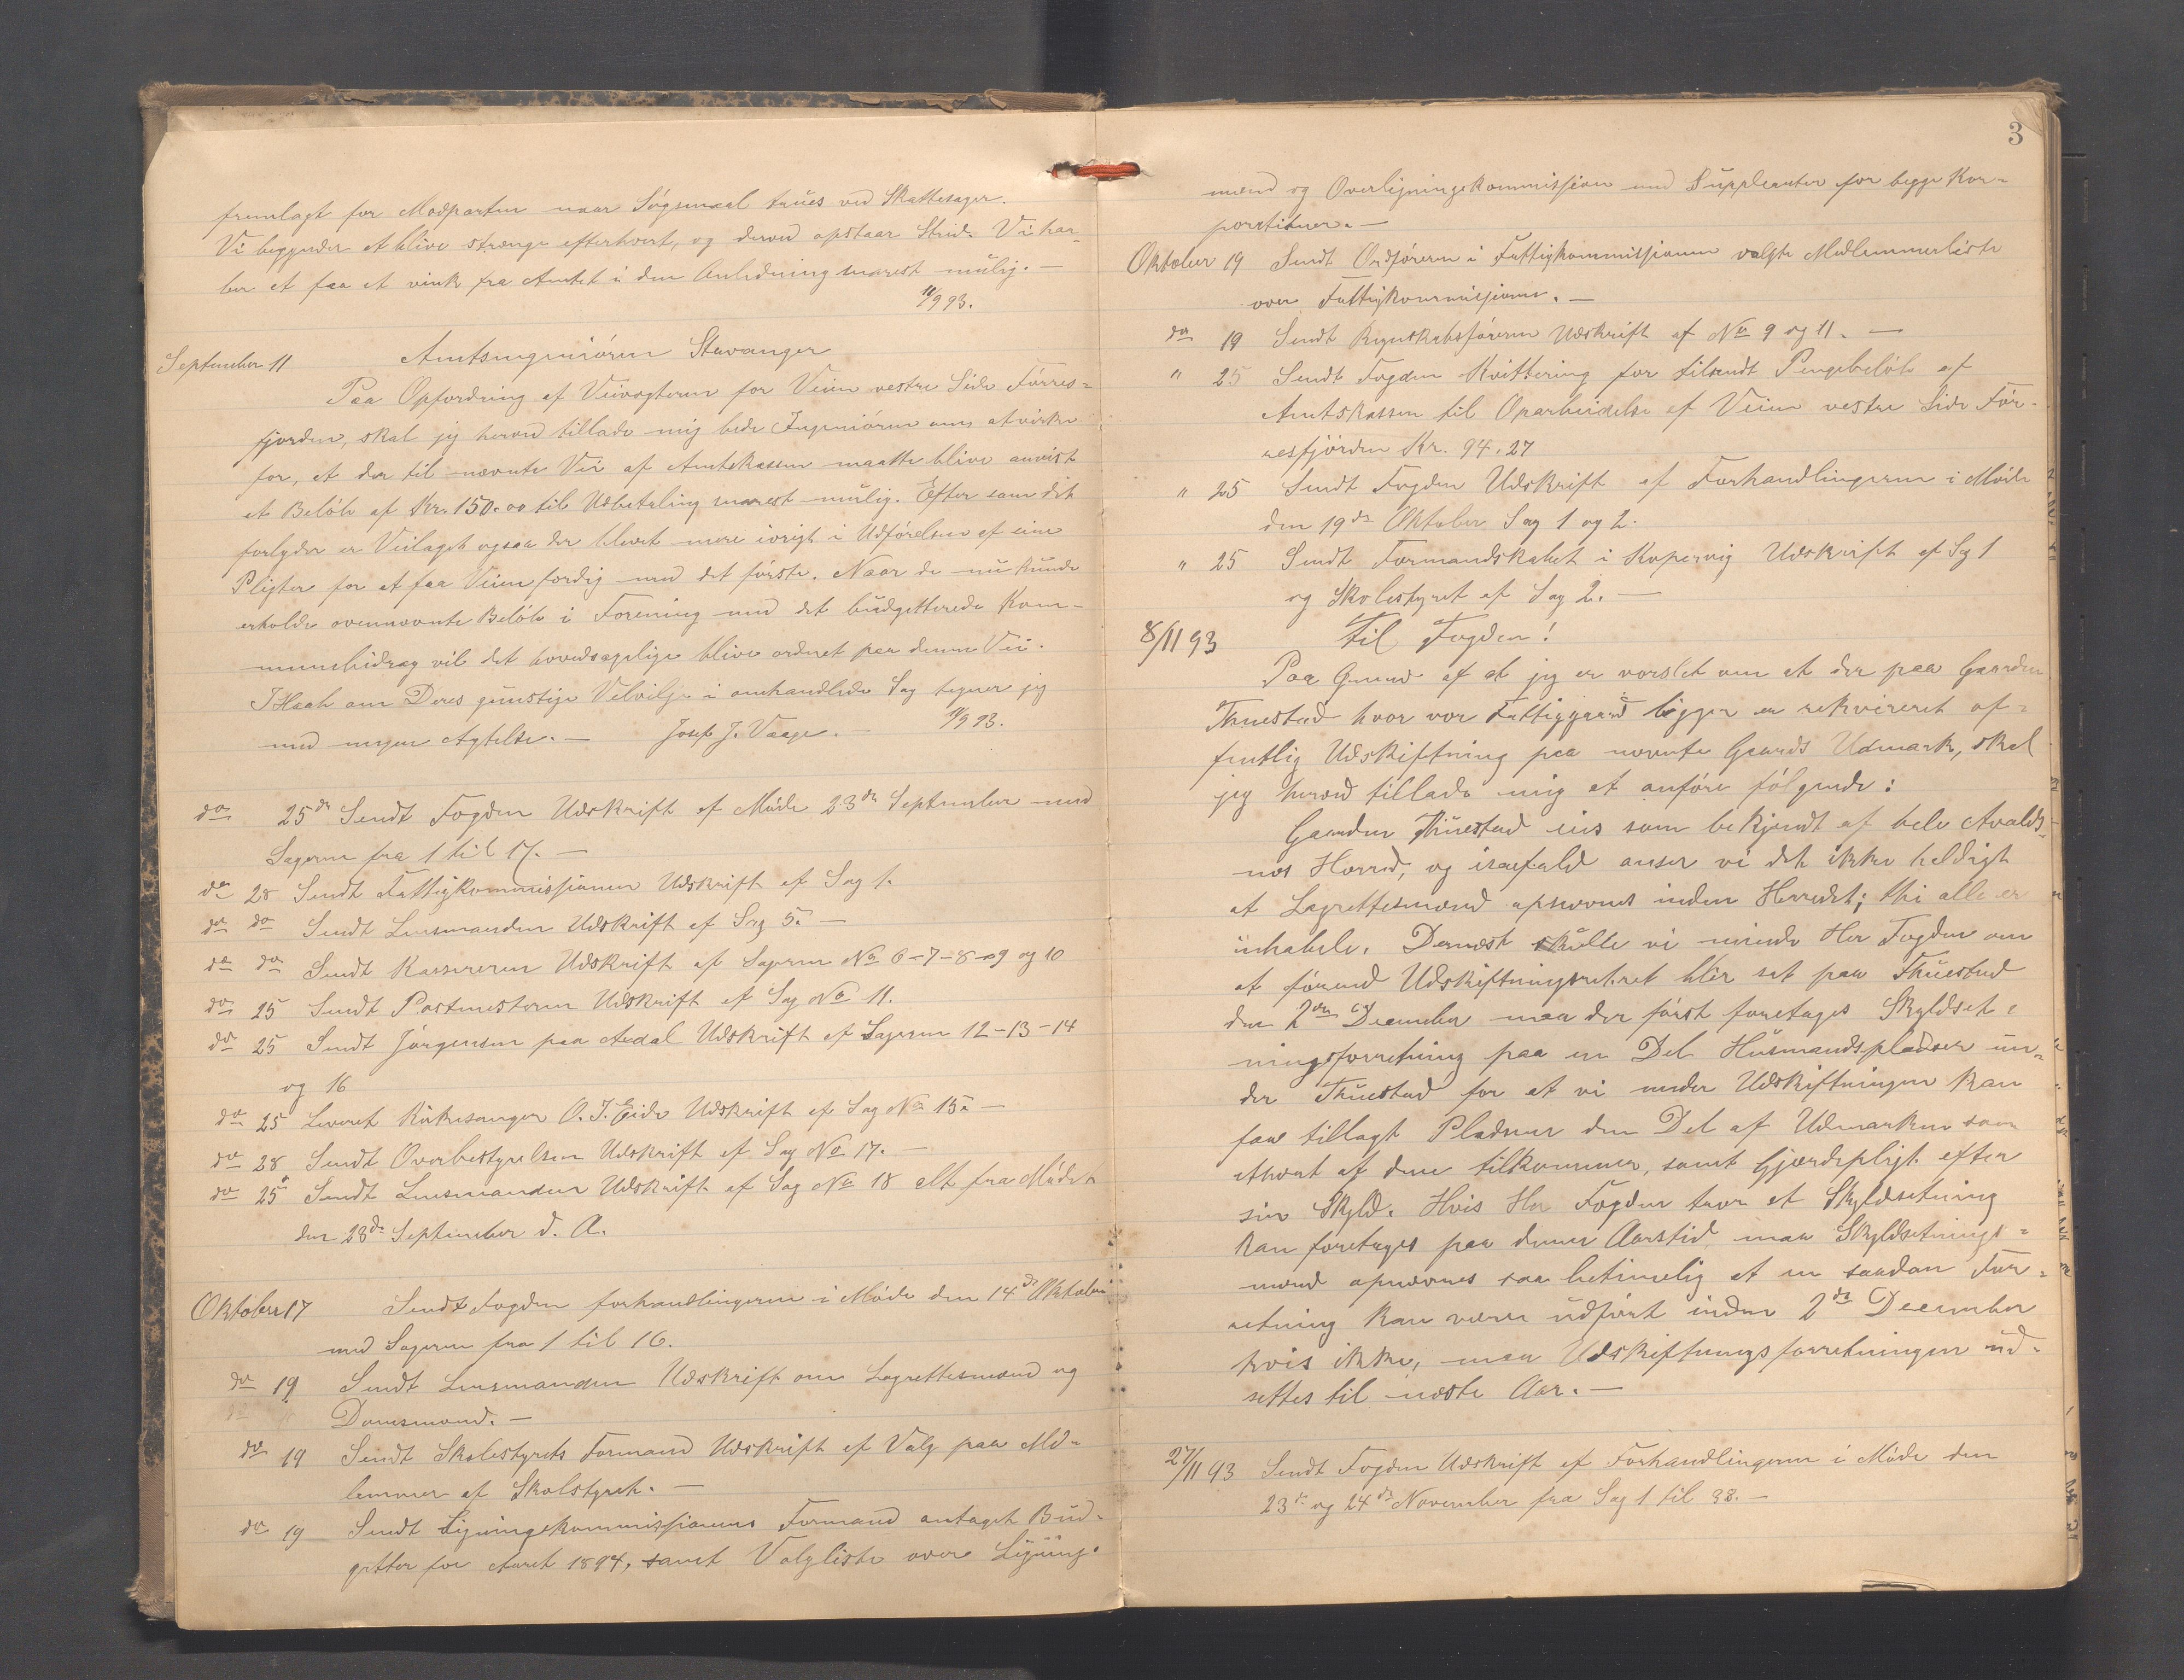 fremlagt for Modparten naar Søgsmaal trues ved Skattesager.
Vi begynder at blive strænge efterhvert, og derved opstaar Strid. Vi har
ber at faa et vink fra Amtet i den Anledning snarest mulig. —
11/9 93.
September 11 Amtsingeniøren Stavanger
Paa Opfordring af Veivogteren for Veien vestre Side Førres-
fjorden, skal jeg herved tillade mig bede Ingeniøren om at virke
for, at der til nævnte Vei af Amtskassen maatte blive anvist
et Beløb af Kr. 150.00 til Udbetaling snarest mulig. Efter som dit
forlyder er Veilaget ogsaa der blevet mere ivrigt i Udførelsen af sine
Pligter for at faa Veien færdig med det første. Naar de nu kunde
erholde ovennævnte Beløb i Forening med det budgetterede Kom-
munebidrag vil det hovedsagelige blive ordnet paa denne Vei.
I Haab om Deres gunstige Velvilje i omhandlede Sag tegner jeg
med megen Agtelse. — Josef J. Vaage. 11/9 93.
do 25de Sendt Fogden Udskrift af Møde 23de September med
Sagerne fra 1 til 17. —
do 28 Sendt Fattigkommissionen Udskrift af Sag 1.
do do Sendt Lensmanden Udskrift af Sag 5. —
do do Sendt Kassereren Udskrift af Sagerne No 6-7-8-9 og 10
do 25 Sendt Postmesteren Udskrift af Sag No 11.
do 25 Sendt Jørgensen paa Audal Udskrift af Sagerne 12-13-14
og 16
do 25 Leveret Kirkesanger O. J. Eide Udskrift af Sag No 15. —
do 28 Sendt Overbestyrelsen Udskrift af Sag No 17. —
do 25 Sendt Lensmanden Udskrift af Sag No 18 alt fra Mødet
den 23de September d. A.
Oktober 17 Sendt Fogden forhandlingerne i Møde den 14de Oktober
med Sagerne fra 1 til 16.
do 19 Sendt Lensmanden Udskrift om Lagrettesmænd og
Domsmænd. —
do 19 Sendt Skolestyrets Formand Udskrift af Valg paa Med-
lemmer af Skolstyret. —
do 19 Sendt Ligningskommissionens Formand antaget Bud-
getter for Aaret 1894, samt Valgliste over Ligning-
3
mænd og Overligningskommission med Suppleanter for begge Kor-
porationer. —
Oktober 19 Sendt Ordføreren i Fattigkommissionen valgte Medlemmerliste
over Fattigkommissionen. —
do 19 Sendt Regnskabsføreren Udskrift af No 9 og 11. —
" 25 Sendt Fogden Kvittering for tilsendt Pengebeløb af
Amtskassen til Oparbeidelse af Veien vestre Side Før-
resfjorden Kr. 94.27
" 25 Sendt Fogden Udskrift af Forhandlingerne i Møde
den 19de Oktober Sag 1 og 2.
" 25 Sendt Formandskabet i Kopervig Udskrift af Sag 1
og Skolestyret af Sag 2. —
8/11 93 Til Fogden!
Paa Grund af at jeg er varslet om at der paa Gaarden
Tuestad hvor vor Fattiggaard ligger er rekvireret of-
fentlig Udskiftning paa nævnte Gaards Udmark, skal
jeg herved tillade mig at anføre følgende:
Gaarden Tuestad eies som bekjendt af hele Avalds-
nes Herred, og isaafald anser vi det ikke heldigt
at Lagrettesmænd opnævnes inden Herredet; thi alle er
inhabele. Dernæst skulle vi minde Her Fogden om
at førend Udskiftningsretret blir sat paa Tuestad
den 2den December maa der først foretages Skyldset-
ningsforretning paa en Del Husmandspladser un-
der Tuestad for at vi under Udskiftningen kan
faa tillagt Pladsene den Del af Udmarken som
ethvert af dem tilkommer, samt Gjærdepligt efter
sin Skyld. Hvis Her Fogden tror at Skyldsetning
kan foretages paa denne Aarstid maa Skyldsetnings-
mænd opnævnes saa betimelig at en saadan For-
retning kan være udført inden 2de December
hvis ikke, maa Udskiftningsforretningen ud-
settes til næste Aar. —
27/11 93 Sendt Fogden Udskrift af Forhandlingerne i Møde den
23de og 24de November fra Sag 1 til 38. —